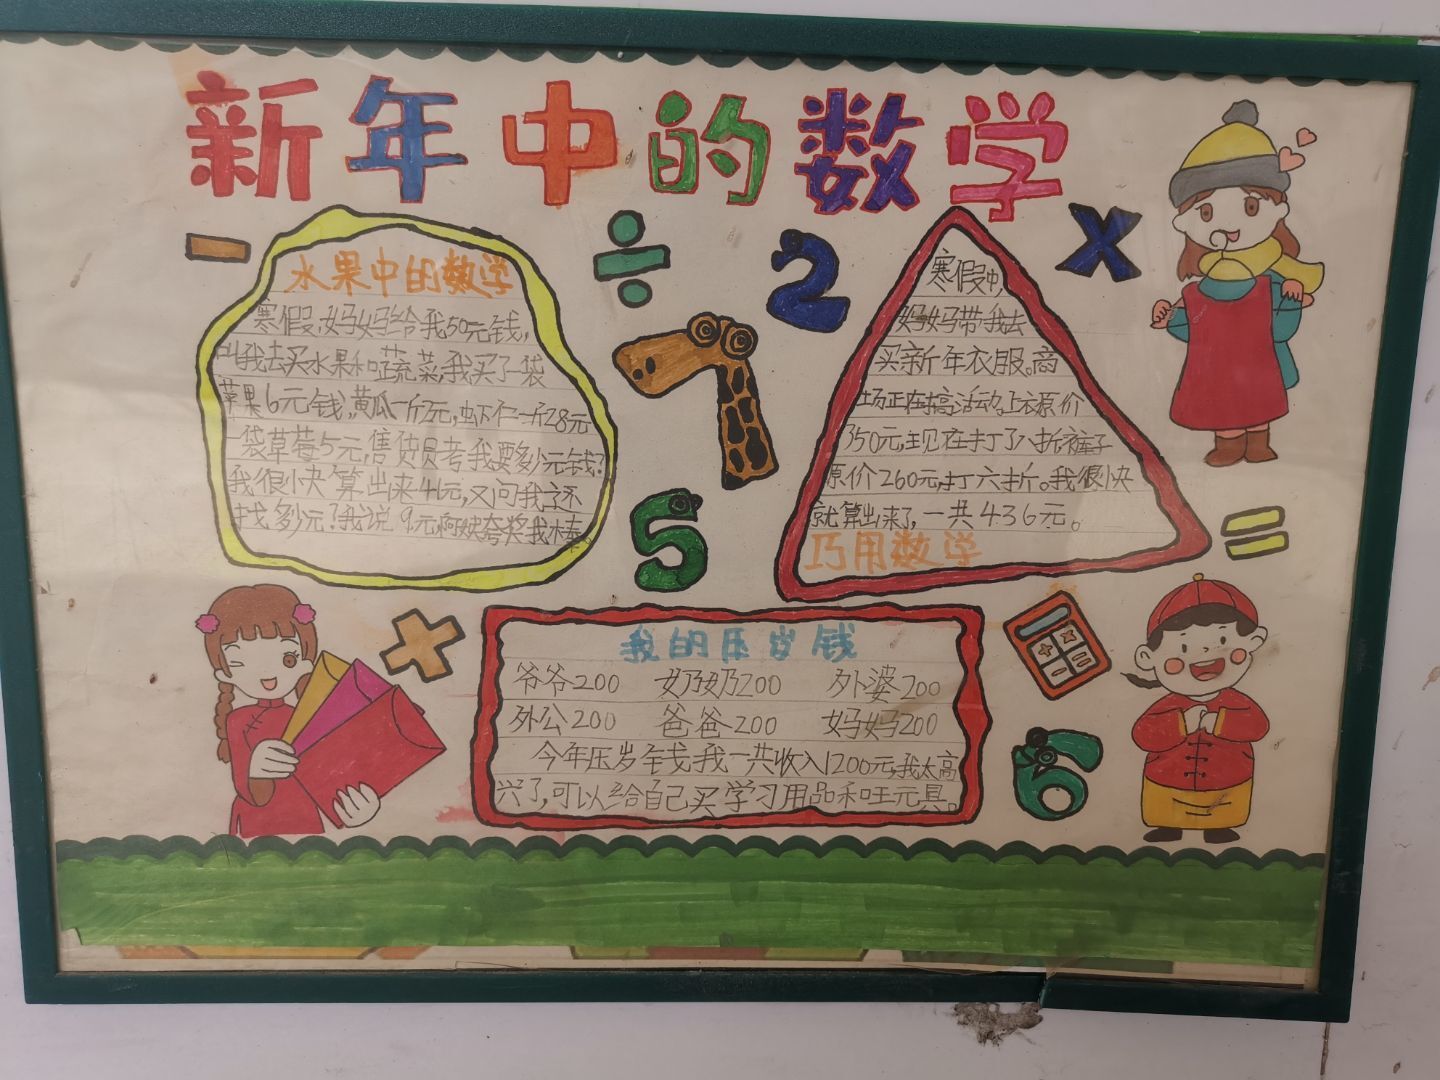 新年中的数学
水果中的数学
寒假,妈妈给我50元钱,
叫我去买水果和蔬菜,我买了一袋
苹果6元钱,黄瓜一斤2元,虾仁一斤28元
一袋草莓5元,售货员考我要多少元钱?
我很小快算出来41元,又问我还
找多少元?我说9元,阿姨夸奖我棒。
寒假中,
妈妈带我去
买新年衣服。商
场正在搞活动,上衣原价
350元,现在打了八折裤子
原价260元,打六折。我很快
就算出来了,一共436元。
巧用数学
我的压岁钱
爷爷200 奶奶200 外婆200
外公200 爸爸200 妈妈200
今年压岁钱我一共收入1200元,我太高
兴了,可以给自己买学习用品和玩具。